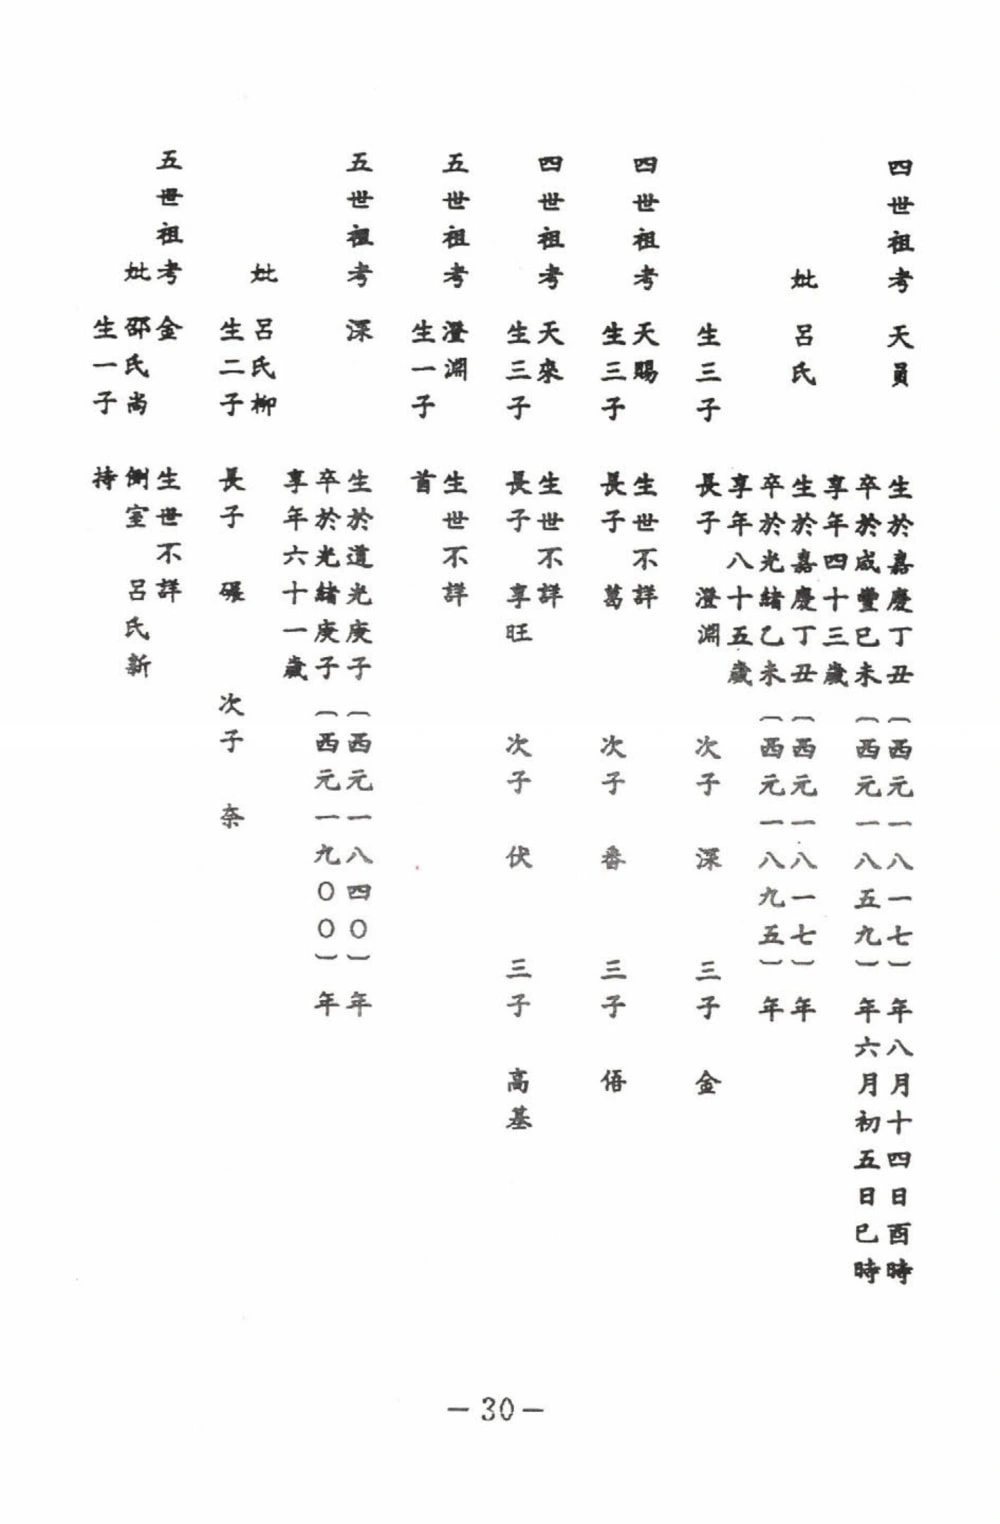 四世祖考 天員 生於嘉慶丁丑(西元一八一七)年八月十四日酉時
卒於咸豐己未(西元一八五九)年六月初五日巳時
享年四十三歲
妣 呂氏 生於嘉慶丁丑(西元一八一七)年
卒於光緒乙未(西元一八九五)年
享年八十五歲
生三子 長子 澄淵 次子 深 三子 金
四世祖考 天賜 生世不詳
生三子 長子 葛 次子 番 三子 俉
四世祖考 天來 生世不詳
生三子 長子 享旺 次子 伏 三子 高基
五世祖考 澄淵 生世不詳
生一子 首
五世祖考 深 生於道光庚子(西元一八四〇)年
卒於光緒庚子(西元一九〇〇)年
享年六十一歲
妣 呂氏柳
生二子 長子 碾 次子 奈
五世祖考 金 生世不詳
妣 邵氏尚 側室 呂氏新
生一子 持
－30－